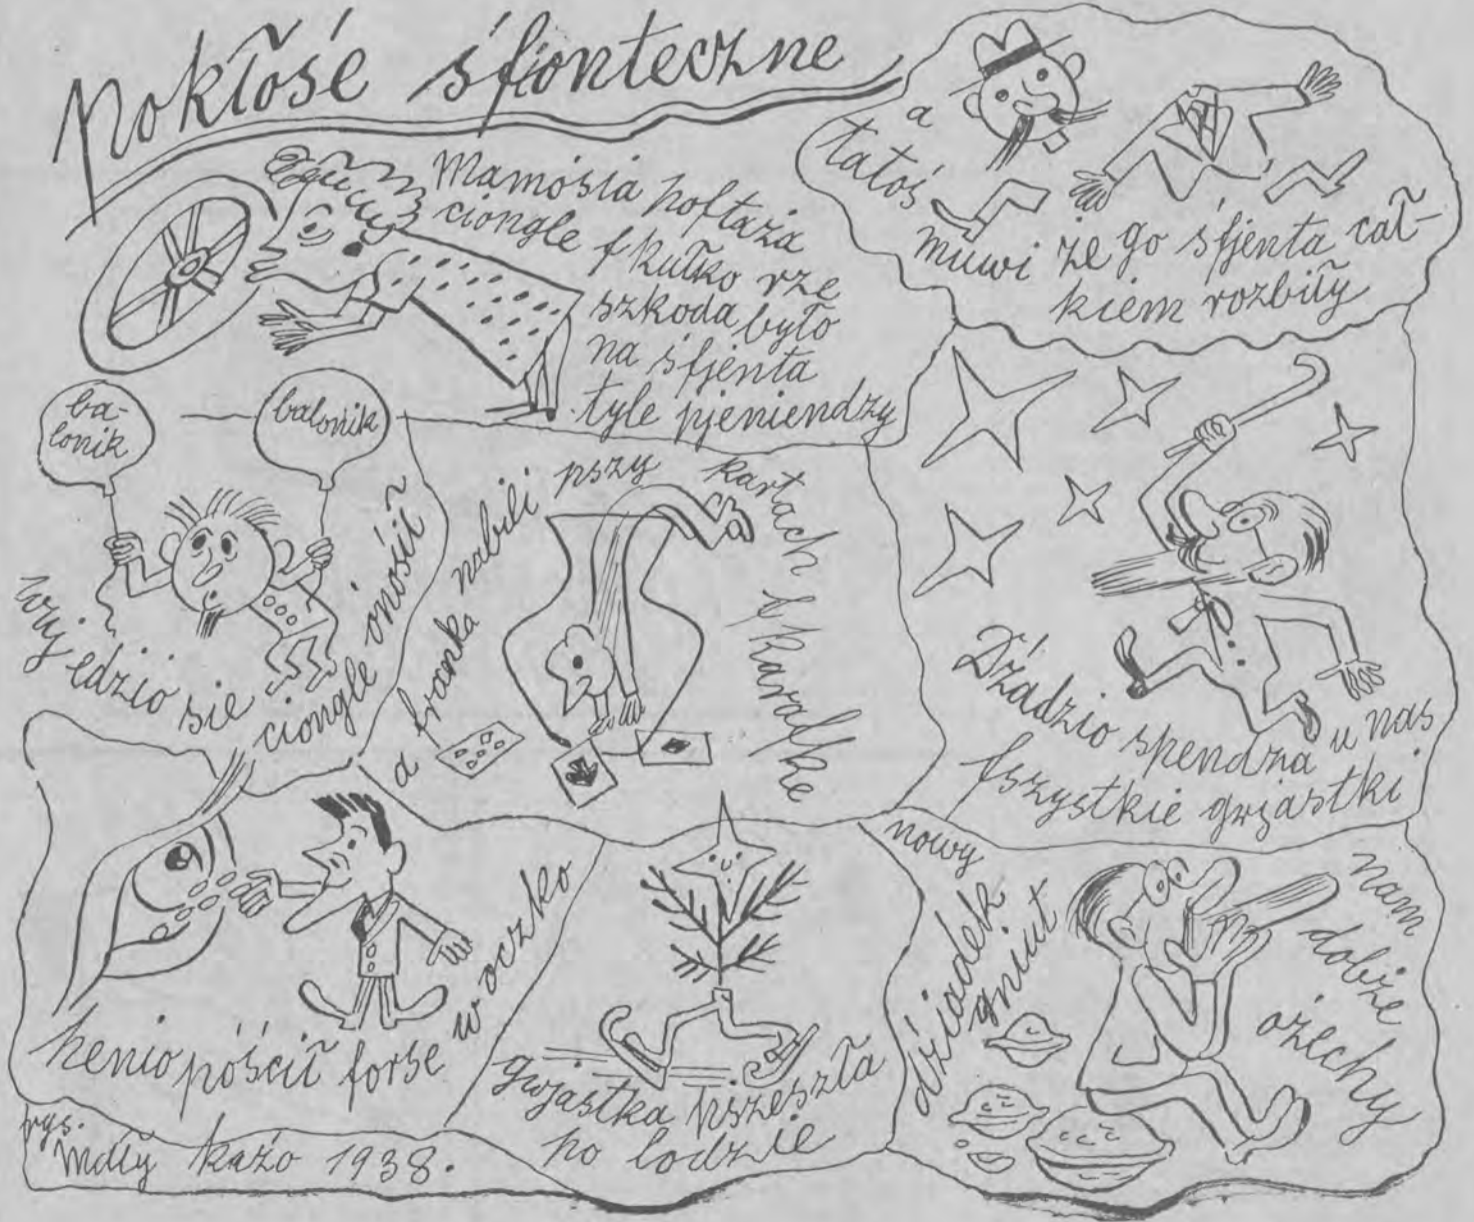 pokłośe śfionteczne
Mamośia poftaża
ciongle f kułko rze
szkoda było
na śfjenta
tyle pjeniendzy
a
tatoś
muwi że go śfjenta cał-
kiem rozbiły
ba-
lonik
balonik
wój edzio sie
ciongle ónośił
a franka nabili pszy kartach f karafke
Dźadzio spendza u nas
fszystkie gwjastki
henio póścił forse w oczko
gwjastka pszeszła
po lodzie
nowy
dźiadek
gniut
nam
dobże
ożechy
rys.
Mdły każo 1938.